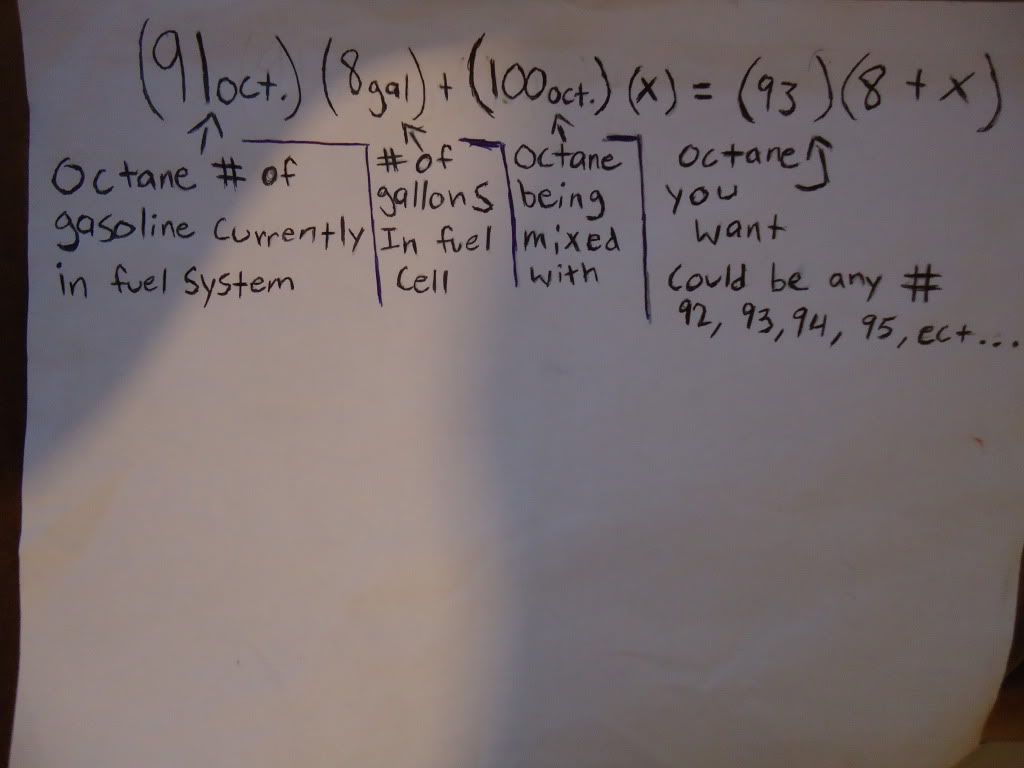 (91oct.) (8gal) + (100oct.) (x) = (93)(8 + x)
Octane # of
gasoline currently
in fuel system
# of
gallons
In fuel
cell
Octane
being
mixed
with
octane
you
want
Could be any #
92, 93, 94, 95, ect...